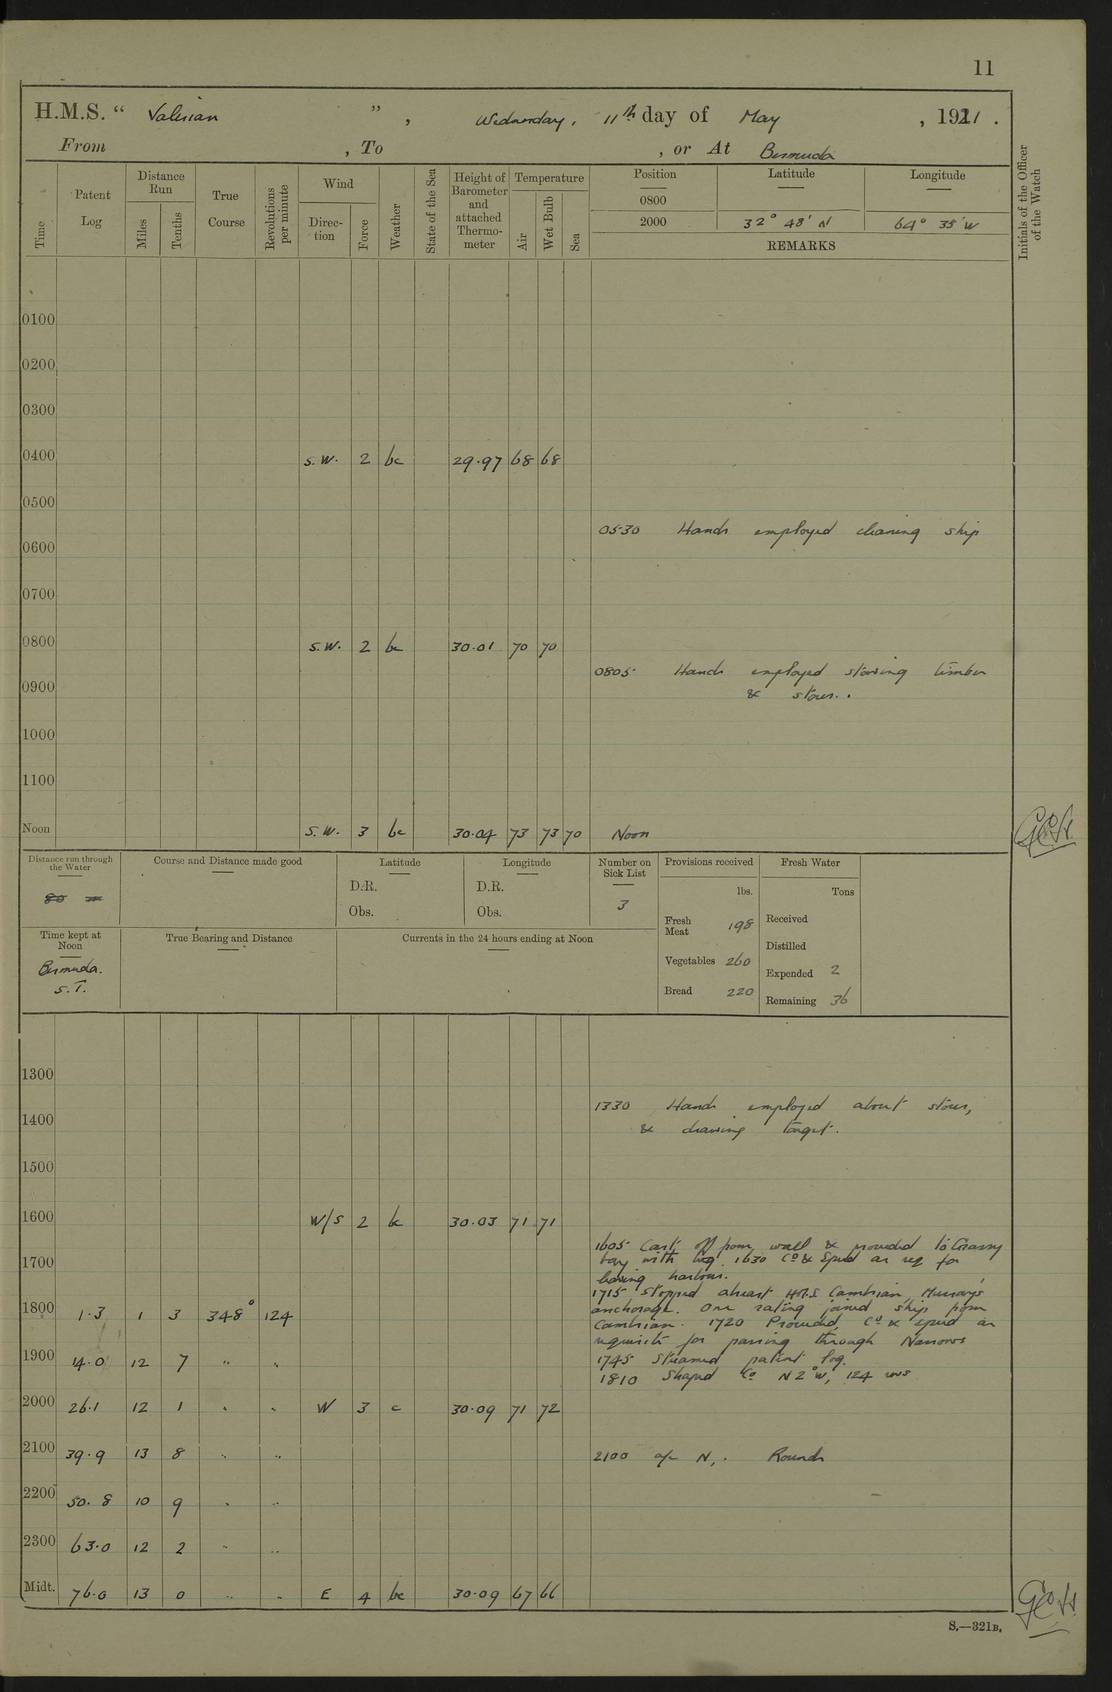 11
H.M.S. “ Valerian ” , Wednesday, 11th day of May , 1921 .
From , To , or At Bermuda
Time
Patent Log
Distance Run
Miles
Tenths
True Course
Revolutions per minute
Wind
Direction
Force
Weather
State of the Sea
Height of Barometer and attached Thermometer
Temperature
Air
Wet Bulb
Sea
Position Latitude Longitude
0800
2000 32° 48' N 64° 35' W
REMARKS
Initials of the Officer of the Watch
0100
0200
0300
0400 S.W. 2 bc 29.97 68 68
0500
0530 Hands employed cleaning ship
0600
0700
0800 S.W. 2 bc 30.01 70 70
0805 Hands employed stowing timber
& stores.
0900
1000
1100
Noon S.W. 3 bc 30.04 73 73 70 Noon
Distance run through the Water
Course and Distance made good
Latitude
D.R.
Obs.
Longitude
D.R.
Obs.
Number on Sick List
3
Provisions received
lbs.
Fresh Meat 198
Vegetables 260
Bread 220
Fresh Water
Tons
Received
Distilled
Expended 2
Remaining 36
Time kept at Noon
Bermuda.
S.T.
True Bearing and Distance
Currents in the 24 hours ending at Noon
1300
1330 Hands employed about stores,
& drawing target.
1400
1500
1600 W/S 2 bc 30.03 71 71
1605 Cast off from wall & proceeded to Grassy
bay with tug. 1630 Co & Speed as req for
leaving harbour.
1700
1715 Stopped abreast H.M.S Cambrian, Murray's
anchorage. One rating joined ship from
Cambrian. 1720 Proceeded, Co & speed as
requisite for passing through Narrows
1745 Streamed patent log.
1810 Shaped Co N 2° W, 124 revs
1800 1.3 1 3 348° 124
1900 14.0 12 7 " "
2000 26.1 12 1 " " W 3 c 30.09 71 72
2100 39.9 13 8 " " 2100 a/c N, . Rounds
2200 50.8 10 9 " "
2300 63.0 12 2 " "
Midt. 76.0 13 0 " " E 4 bc 30.09 67 66
S.—321B.